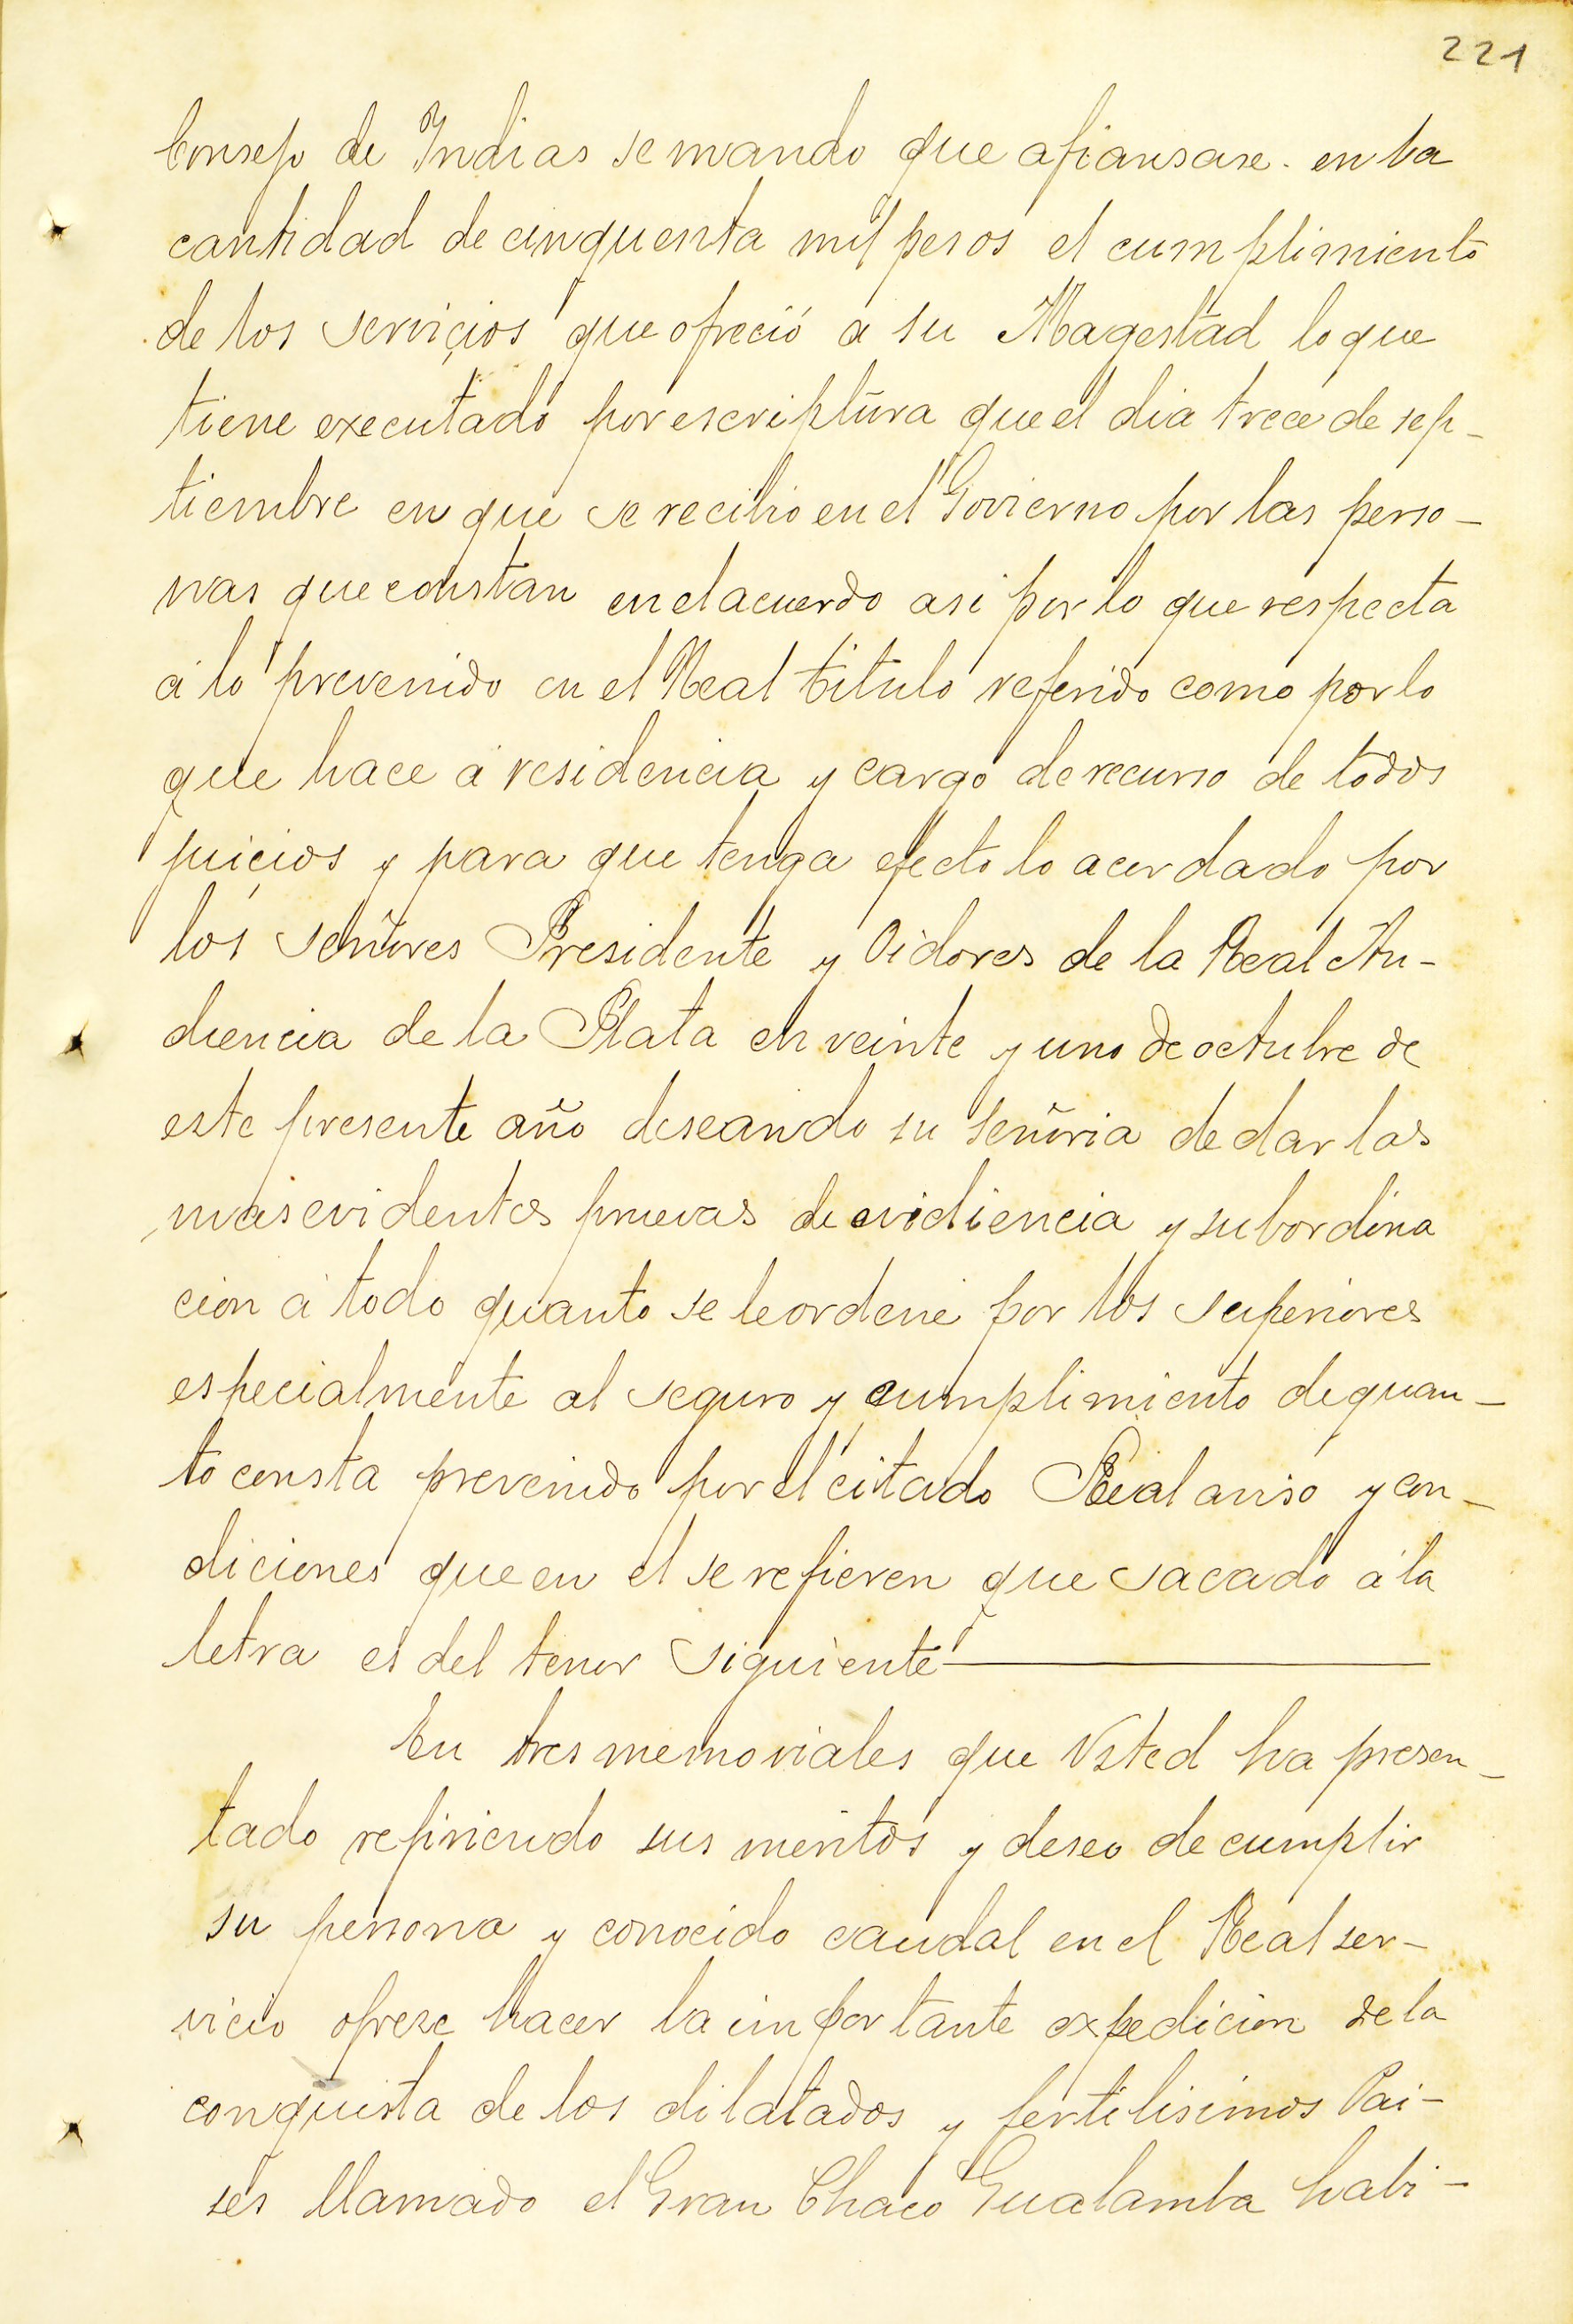 221
Consejo de Indias se mando que afiansase en la
cantidad de cinquenta mil pesos el cumplimiento
de los servicios que ofreció a su Magestad lo que
tiene executado por escriptura que el dia trece de sep-
tiembre en que se recibio en el Govierno por las perso-
nas que constan en el acuerdo asi por lo que respecta
á lo prevenido en el Real titulo referido como por lo
que hace á residencia y cargo de recurso de todos
juicios y para que tenga efecto lo acordado por
los señores Presidente y Oidores de la Real Au-
diencia de la Plata en veinte y uno de octubre de
este presente año deseando su señoria de dar las
mas evidentes pruevas de ovidiencia y subordina
cion á todo quanto se le ordene por los superiores
especialmente al seguro y cumplimiento de quan-
to consta prevenido por el citado Real aviso y con-
diciones que en el se refieren que sacado á la
letra es del tenor siguiente
En tres memoriales que Vsted ha presen-
tado refiriendo sus meritos y deseo de cumplir
su persona y conocido caudal en el Real ser-
vicio ofreze hacer la importante expedicion de la
conquista de los dilatados y fertilisimos Pai-
ses llamado el Gran Chaco Gualamba habi-